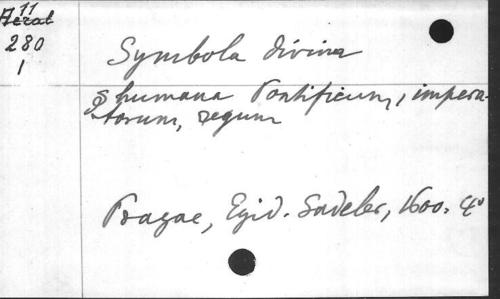 11
Aerat
280
1
Symbola divina
& humana Pontificum, impera-
torum, regum
Pragae, Egid. Sadeler, 1600. 4°